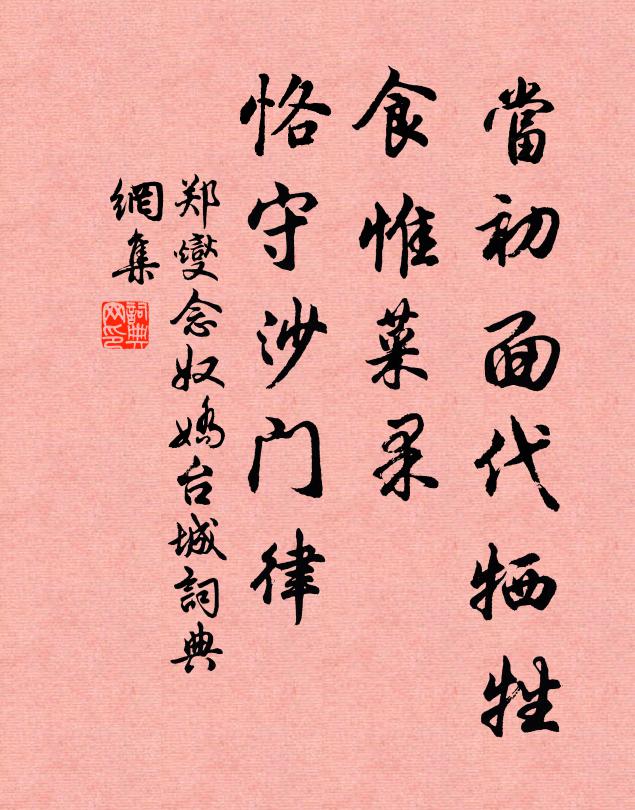 當初面代牺牲
食惟菜果
恪守沙门律
郑燮念奴嬌台城詞典
網集
詞典
网印